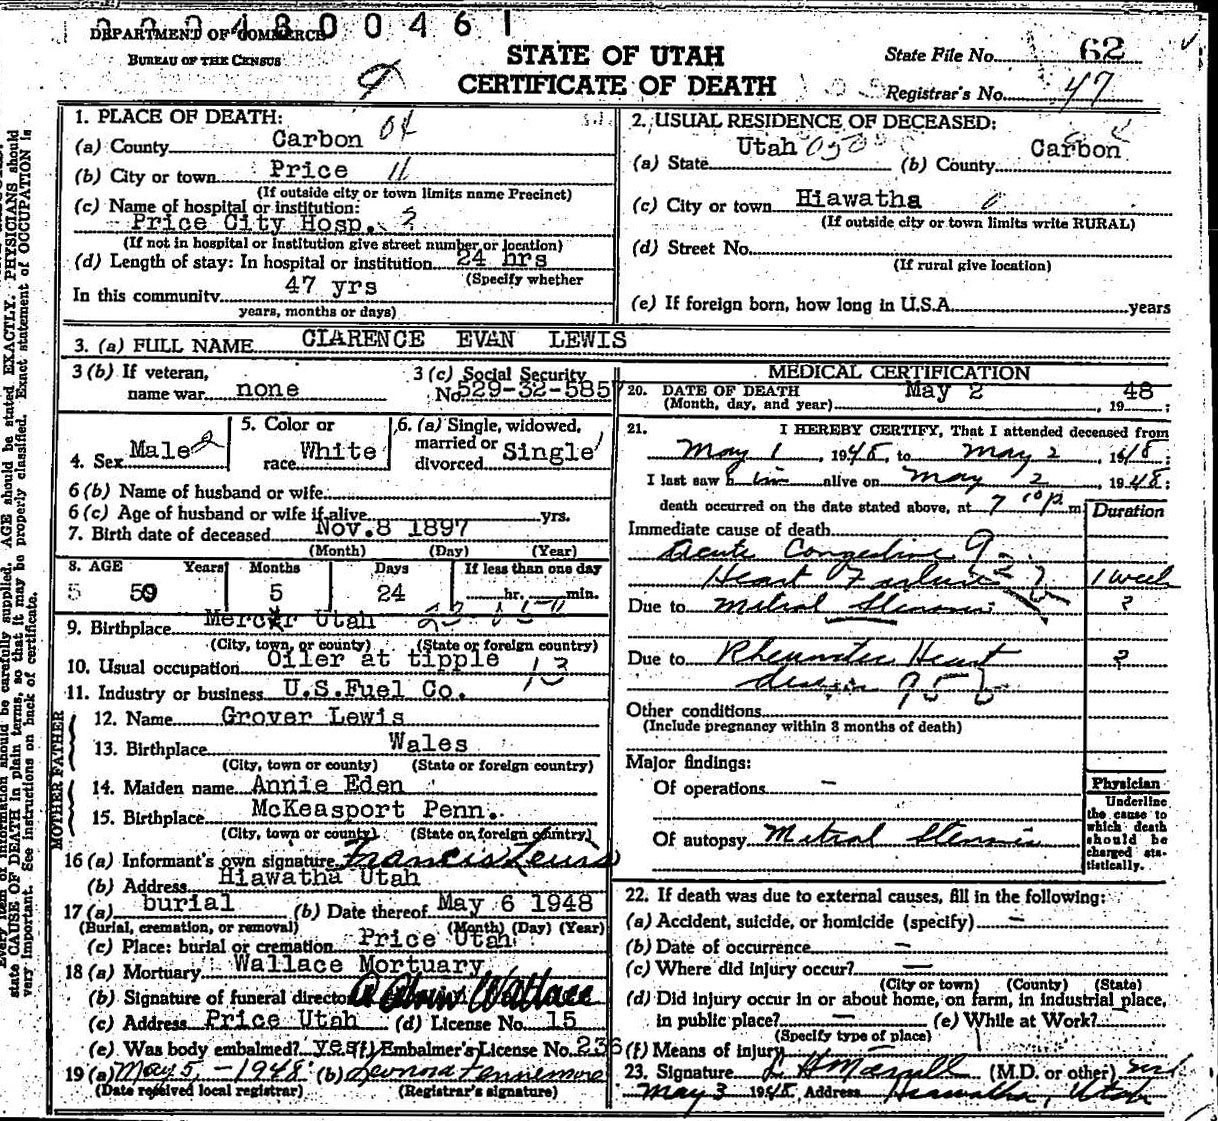 00480046 1
DEPARTMENT OF COMMERCE
BUREAU OF THE CENSUS
STATE OF UTAH
CERTIFICATE OF DEATH
State File No. 62
Registrar's No. 47
1. PLACE OF DEATH:
(a) County Carbon 04
(b) City or town Price 11
(If outside city or town limits name Precinct)
(c) Name of hospital or institution:
Price City Hosp. 2
(If not in hospital or institution give street number or location)
(d) Length of stay: In hospital or institution 24 hrs
(Specify whether
In this community 47 yrs
years, months or days)
2. USUAL RESIDENCE OF DECEASED:
(a) State Utah (b) County Carbon
(c) City or town Hiawatha 0
(If outside city or town limits write RURAL)
(d) Street No.
(If rural give location)
(e) If foreign born, how long in U.S.A. years
3. (a) FULL NAME CLARENCE EVAN LEWIS
3 (b) If veteran,
name war none
3 (c) Social Security
No. 529-32-5857
4. Sex Male
5. Color or
race White
6. (a) Single, widowed,
married or
divorced Single
6 (b) Name of husband or wife
6 (c) Age of husband or wife if alive yrs.
7. Birth date of deceased Nov.8 1897
(Month) (Day) (Year)
8. AGE Years Months Days If less than one day
5 50 5 24 hr. min.
9. Birthplace Mercur Utah
(City, town, or county) (State or foreign country)
10. Usual occupation Oiler at tipple 13
11. Industry or business U.S.Fuel Co.
FATHER
12. Name Grover Lewis
13. Birthplace Wales
(City, town or county) (State or foreign country)
MOTHER
14. Maiden name Annie Eden
15. Birthplace McKeasport Penn.
(City, town or county) (State or foreign country)
16 (a) Informant's own signature Francis Lewis
(b) Address Hiawatha Utah
17 (a) burial (b) Date thereof May 6 1948
(Burial, cremation, or removal) (Month) (Day) (Year)
(c) Place: burial or cremation Price Utah
18 (a) Mortuary Wallace Mortuary
(b) Signature of funeral director Wallace
(c) Address Price Utah (d) License No. 15
(e) Was body embalmed? yes (f) Embalmer's License No. 236
19 (a) May 5, -1948 (b) Leonora Fennemore
(Date received local registrar) (Registrar's signature)
MEDICAL CERTIFICATION
20. DATE OF DEATH May 2 48
(Month, day, and year) , 19 ;
21. I HEREBY CERTIFY, That I attended deceased from
May 1 , 1948, to May 2 , 1948;
I last saw him alive on May 2 , 1948;
death occurred on the date stated above, at 7 10 p m.
Duration
Immediate cause of death
Acute Congestive
Heart Failure 1 week
Due to Mitral Stenosis ?
Due to Rheumatic Heart ?
disease 95 b
Other conditions
(Include pregnancy within 3 months of death)
Major findings:
Of operations –
Of autopsy Mitral Stenosis
Physician
Underline
the cause to
which death
should be
charged sta-
tistically.
22. If death was due to external causes, fill in the following:
(a) Accident, suicide, or homicide (specify) –
(b) Date of occurrence –
(c) Where did injury occur? –
(City or town) (County) (State)
(d) Did injury occur in or about home, on farm, in industrial place,
in public place? – (e) While at Work?
(Specify type of place)
(f) Means of injury
23. Signature (M.D. or other) md
May 3 1948, Address Hiawatha, Utah
state CAUSE OF DEATH in plain terms, so that it may be properly classified. Exact statement of OCCUPATION is
very important. See instructions on back of certificate.